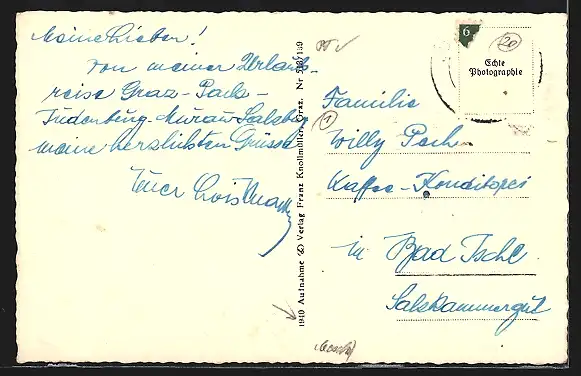 Meine Lieben!
von meiner Urlaub-
reise Graz - Pack -
Judenburg - Murau Salzbg
meine herzlichsten Grüsse
Euer Lois
1910 Aufnahme & Verlag Franz Knollmüller, Graz. Nr
6
20
Echte
Photographie
Familie
1
Willy
Kaffee-Konditorei
in Bad Ischl
Salzkammergut